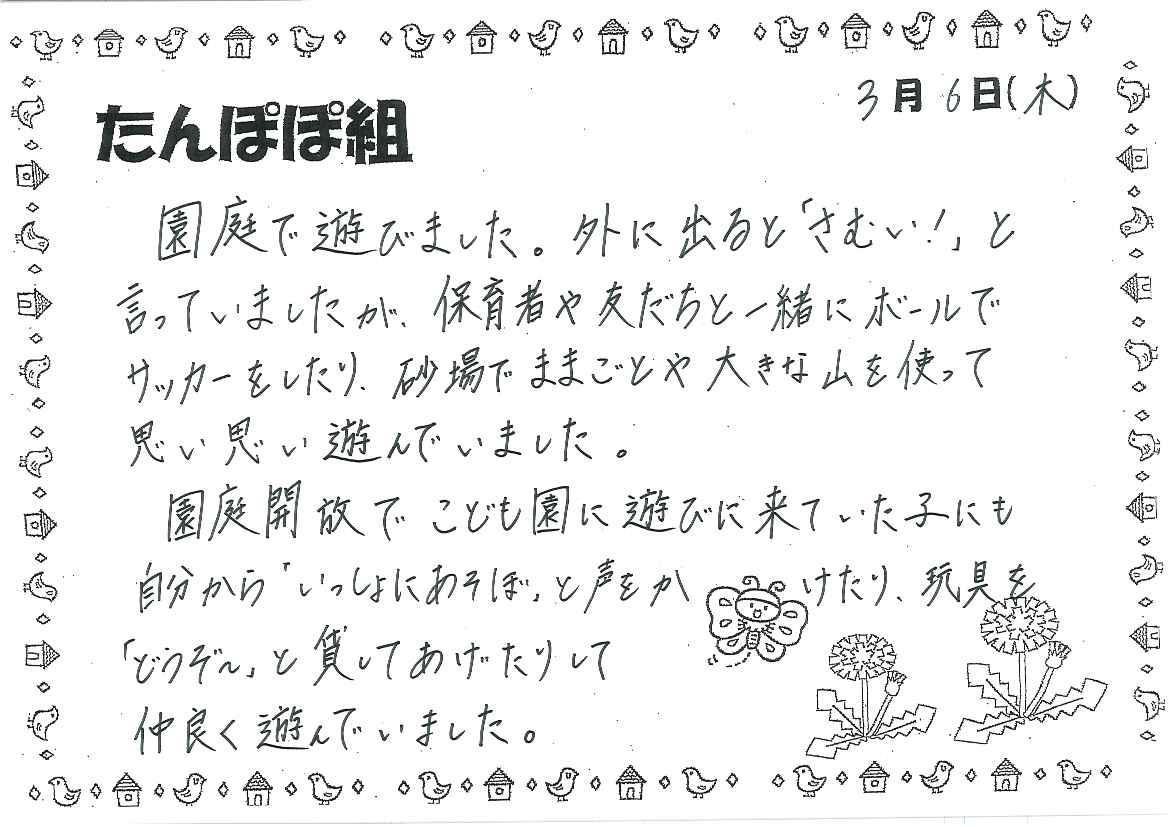 3月6日(木)
たんぽぽ組
園庭で遊びました。外に出ると「さむい!」と
言っていましたが、保育者や友だちと一緒にボールで
サッカーをしたり、砂場でままごとや大きな山を使って
思い思い遊んでいました。
園庭開放でこども園に遊びに来ていた子にも
自分から「いっしょにあそぼ」と声をかけたり、玩具を
「どうぞ〜」と貸してあげたりして
仲良く遊んでいました。